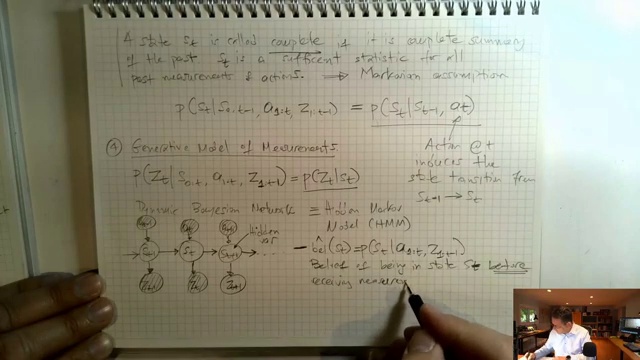 A state St is called complete if it is complete summary
of the past St is a sufficient statistic for all
past measurements & actions. ⟹ Markovian assumption
p(St|S0:t-1, a1:t, Z1:t-1) = p(St|St-1, at)
Action @ t
induces the
state transition from
St-1 → St
④ Generative Model of Measurements
p(Zt|S0:t, a1:t, Z1:t-1) = p(Zt|St)
Dynamic Bayesian Networks ≡ Hidden Markov
Model (HMM)
Hidden
vars
St-1 St St+1 ...
Zt-1 Zt Zt+1
- bel(St) = p(St|a1:t, Z1:t-1)
Belief of being in state St before
receiving